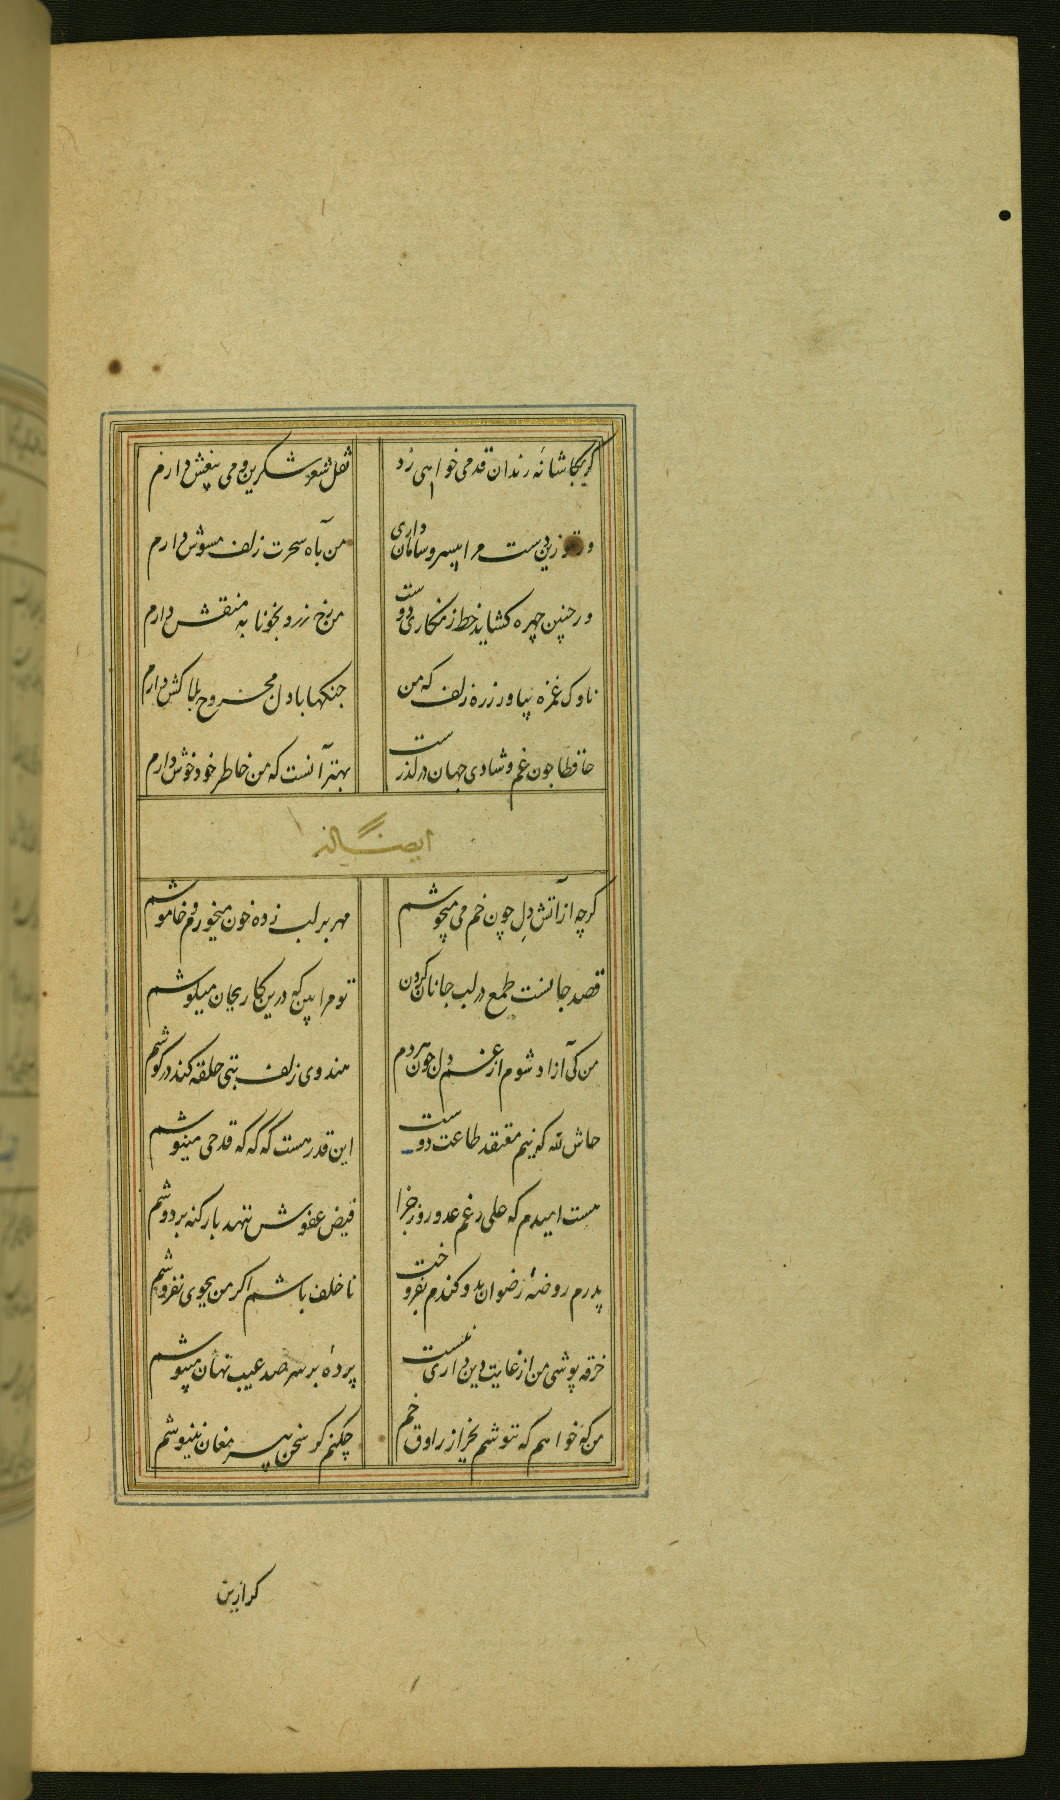 گر بکاشانهٔ رندان قدمی خواهی زد
نقل شعر شکرین و می بیغش دارم
ور تو زین دست مرا بیسر و سامان داری
من بآه سحرت زلف مشوش دارم
ور چنین چهره کشاید خط زنکاری دوست
من رخ زرد بخونابه منقش دارم
ناوک غمزه بیاور زره زلف که من
جنکها با دل مجروح بلاکش دارم
حافظا جون غم و شادی جهان در کذرست
بهتر آنست که من خاطر خود خوش دارم
ایضاله
کرچه از آتش دل چون خم می میجوشم
مهر بر لب زده خون میخورم و خاموشم
قصد جانست طمع در لب جانان کردن
تو مرا بین که درین کار بجان میکوشم
من کی آزاد شوم از غم دل جون هر دم
هندوی زلف بتی حلقه کند در کوشم
حاش لله که نیم معتقد طاعت دوست
این قدر هست که که که قدحی مینوشم
هست امیدم که علی رغم عدو روز جزا
فیض عفوش ننهد بار کنه بر دوشم
پدرم روضهٔ رضوان بدو کندم بفروخت
ناخلف باشم اکر من بجوی نفروشم
خرقه پوشی من از غایت دین داری نیست
پردهٔ بر سر صد عیب نهان میپوشم
من که خواهم که ننوشم بجز از راوق خم
چکنم کر سخن پیر مغان ننیوشم
کر ازین